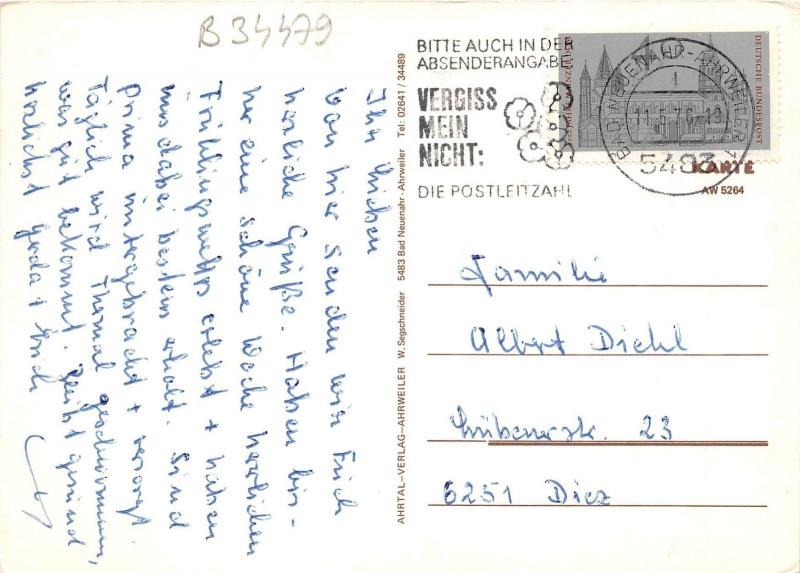 B 34479
Ihr Lieben
von hier senden wir Euch
herzliche Grüße. Haben bis-
her eine schöne Woche herrlichen
Frühlingswetters erlebt + haben
uns dabei bestens erholt. Sind
prima untergebracht + versorgt.
Täglich wird Thermal geschwommen,
was gut bekommt. Bleibt gesund
herzlichst Gerda + Erich
AHRTAL-VERLAG-AHRWEILER W. Segschneider 5483 Bad Neuenahr-Ahrweiler Tel: 02641 / 34489
BITTE AUCH IN DER
ABSENDERANGABE
VERGISS
MEIN
NICHT:
DIE POSTLEITZAHL
DEUTSCHE BUNDESPOST
BAD NEUENAHR-AHRWEILER
1
5483
KARTE
AW 5264
Familie
Albert Diehl
23
6251 Diez